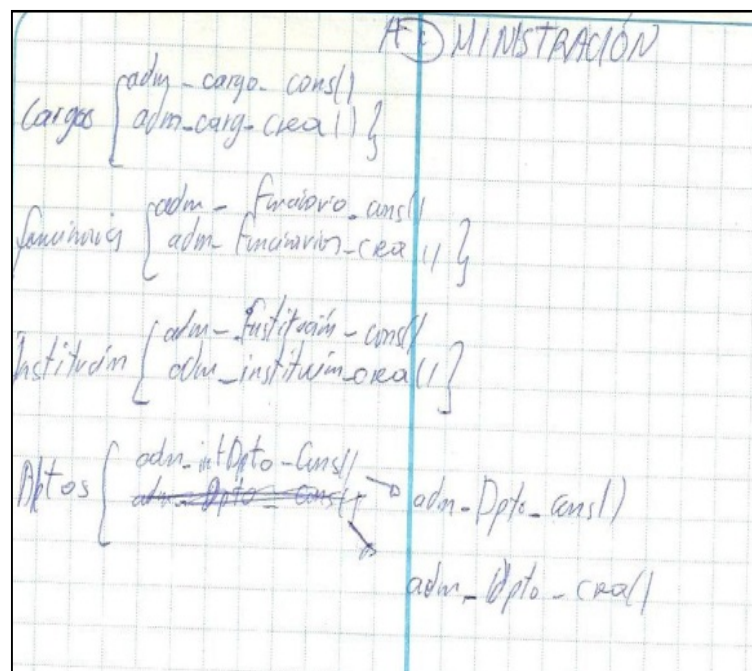 ADMINISTRACIÓN
Cargos { adm_cargo_cons()
adm_carg_crea() }
adm_Funcionario_cons()
adm_Funcionarios_crea() }
Institución { adm_Institución_cons()
adm_institución_crea() }
Dptos { adm_intDpto_Cons()
adm_Dpto_Cons() → adm_Dpto_Cons()
adm_Dpto_crea()